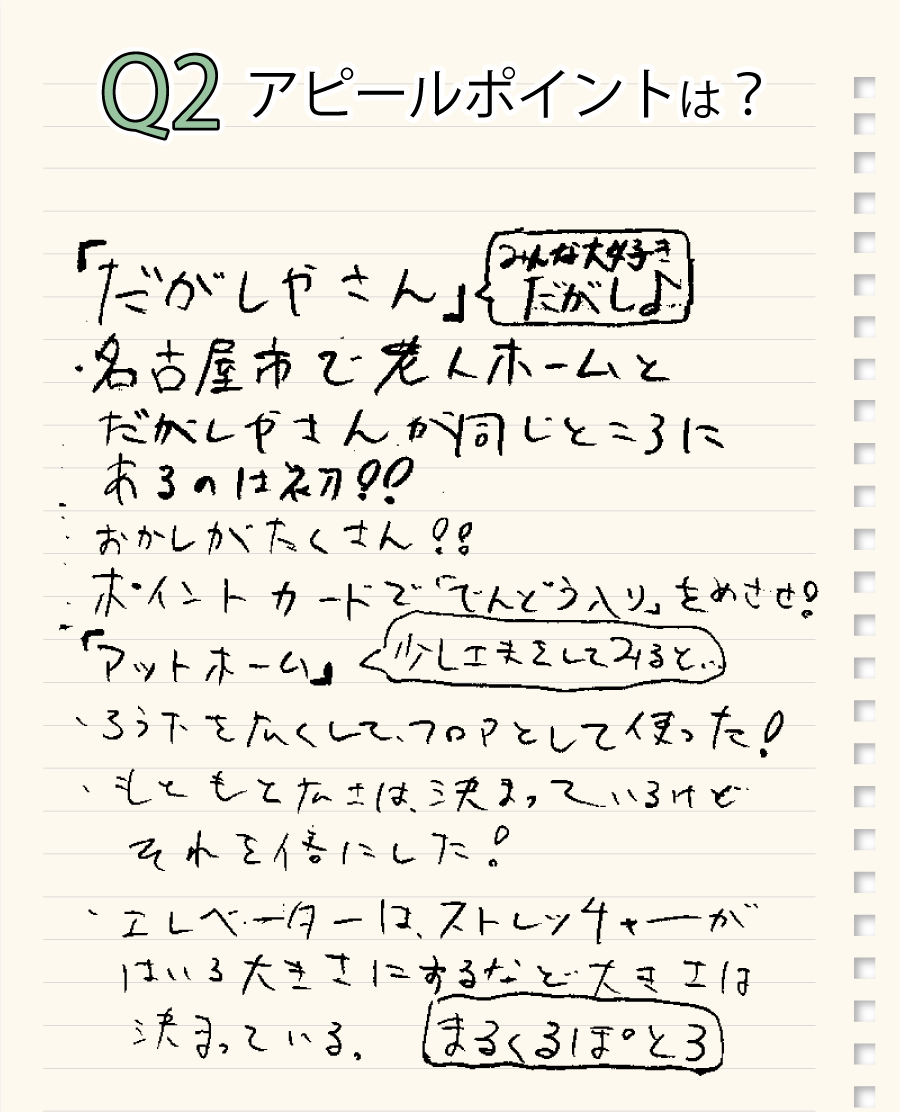 Q2 アピールポイントは？
「だがしやさん」
みんな大好き
だがし♪
・名古屋市で老人ホームと
だがしやさんが同じところに
あるのは初!!
おかしがたくさん!!
ポイントカードで「でんどう入り」をめざせ!
「アットホーム」
少し工夫をしてみると...
・ろう下を広くして、フロアとして使った!
・もともと広さは、決まっているけど
それを倍にした!
・エレベーターは、ストレッチャーが
はいる大きさにするなど大きさは
決まっている。
まるくるぽところ